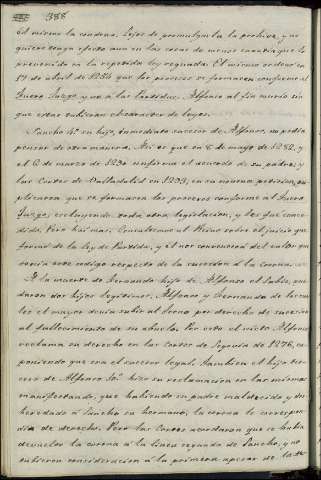 388
El mismo la condena. Lejos de promulgarla la prohive, y no
quiere tenga efecto aun en las cosas de menor cuantia que lo
prevenido en la repetida ley segunda. El mismo ordenó en
19 de abril de 1254 que los procesos se formasen conforme al
Fuero Juzgo, y no á las Partidas. Alfonso al fin murió sin
que estas tubieran el caracter de leyes.
Sancho 4º su hijo, inmediato sucesor de Alfonso, no podia
pensar de otra manera. Asi es que en 8 de mayo de 1282, y
el 6 de marzo de confirma el acuerdo de su padre; y
las Cortes de Valladolid en 1293, en su novena peticion, su
plicaron que se formasen los procesos conforme al Fuero
Juzgo, escluyendo toda otra legislacion, y les fue conce
dida. Pero hai mas. Consultemos al Reino sobre el juicio que
formó de la ley de Partida, y el nos convencerá del valor que
tenia este codigo respecto de la sucesion á la corona.
A la muerte de Fernando hijo de Alfonso el Sabio, que
daron dos hijos legitimos, Alfonso y Fernando de los cua
les el mayor devia subir al trono por derecho de sucesion
al fallecimiento de su abuelo. Por esto el nieto Alfonso
reclama su derecho en las Cortes de Segovia de 1276, es
poniendo que era el sucesor legal. Tambien el hijo ter
cero de Alfonso 10º hizo su reclamacion en las mismas
manifestando, que habiendo su padre maldecido y des
heredado á Sancho su hermano, la corona le correspon
dia de derecho. Pero las Cortes acordaron que se habia
devuelto la corona á la linea segunda de Sancho, y no
tubieron consideracion á la primera apesar de la